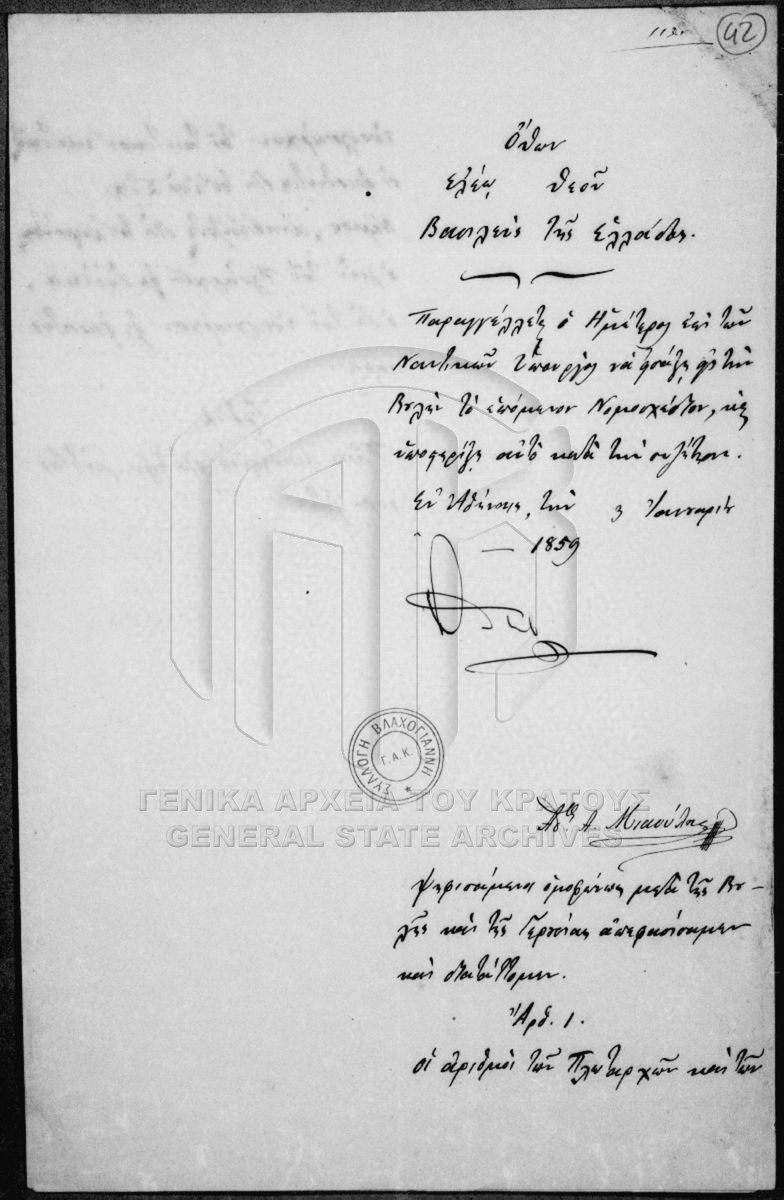 42
Ὄθων
ἐλέῳ Θεοῦ
Βασιλεὺς τῆς Ἑλλάδος.
Παραγγέλλεται ὁ Ἡμέτερος ἐπὶ τῶν
Ναυτικῶν Ὑπουργὸς νὰ εἰσάξῃ εἰς τὴν
Βουλὴν τὸ ἑπόμενον Νομοσχέδιον, καὶ
ὑποστηρίξῃ αὐτὸ κατὰ τὴν συζήτησιν.
Ἐν Ἀθήναις, τὴν 3 Ἰανουαρίου
— 1859
Ὄθων
ΣΥΛΛΟΓΗ ΒΛΑΧΟΓΙΑΝΝΗ
Γ.Α.Κ.
ΓΕΝΙΚΑ ΑΡΧΕΙΑ ΤΟΥ ΚΡΑΤΟΥΣ
GENERAL STATE ARCHIVES
Α. Μιαούλης
Ψηφισάμενοι ὁμοφώνως μετὰ τῆς Βου-
λῆς καὶ τῆς Γερουσίας ἀπεφασίσαμεν
καὶ διατάττομεν.
Ἄρθ. 1.
Οἱ ἀριθμοὶ τῶν Πλωταρχῶν καὶ τῶν